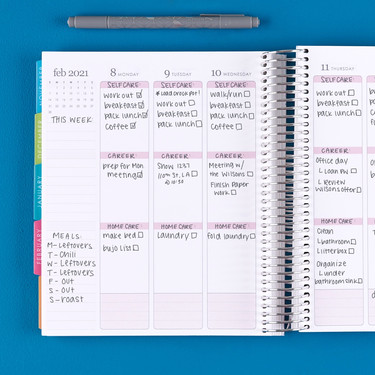 feb 2021
8 MONDAY
9 TUESDAY
10 WEDNESDAY
11 THURSDAY
THIS WEEK
MEALS:
M- Leftovers
T- Chili
W- Leftovers
T- Leftovers
F- Out
S- Out
S- roast
SELF CARE
work out
breakfast
pack lunch
coffee
CAREER
prep for Mon
meeting
HOME CARE
make bed
bujo list
SELF CARE
work out
breakfast
pack lunch
CAREER
Show 1237
110th St, LA
@10:30
HOME CARE
laundry
SELF CARE
walk/run
breakfast
pack lunch
coffee
CAREER
Meeting w/
the Wilsons
Finish Paper
work
HOME CARE
fold laundry
SELF CARE
work out
breakfast
pack lunch
CAREER
Office day
L Loan PW
L Review
Wilsons offer
HOME CARE
Clean
L bathroom
L litterbox
Organize
L under
bathroom sink
JANUARY
FEBRUARY